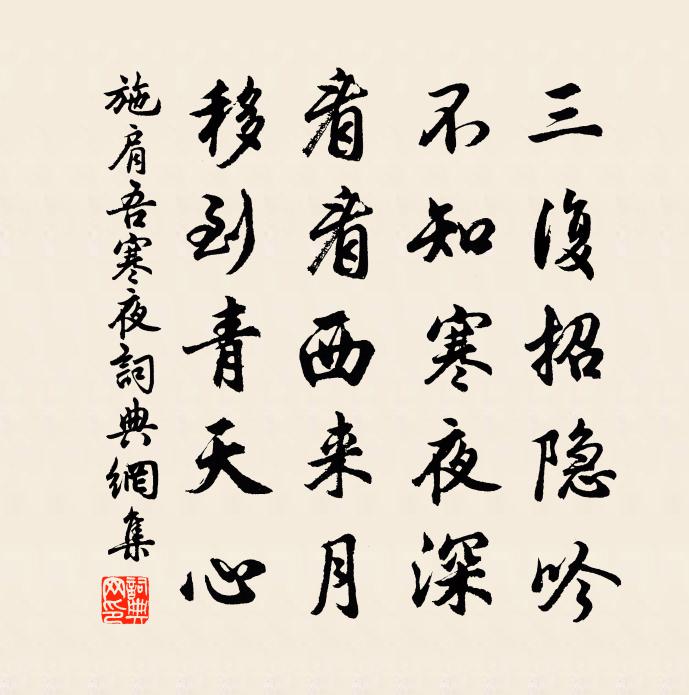 三復招隐吟
不知寒夜深
看看西来月
移到青天心
施肩吾寒夜詞典網集
詞典網印